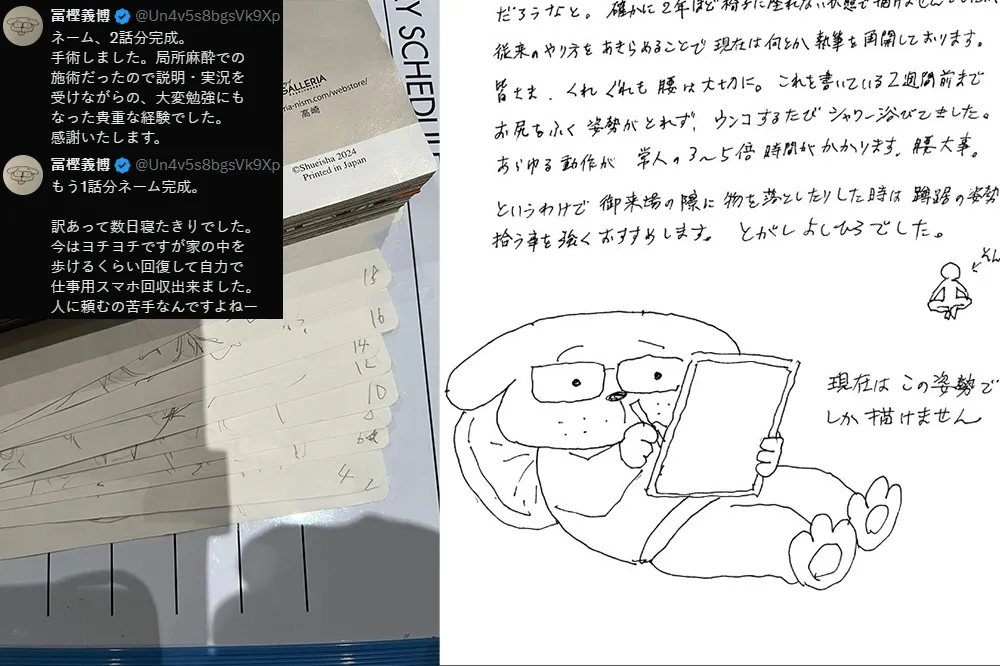 冨樫義博 @Un4v5s8bgsVk9Xp
ネーム、2話分完成。
手術しました。局所麻酔での
施術だったので説明・実況を
受けながらの、大変勉強にも
なった貴重な経験でした。
感謝いたします。
冨樫義博 @Un4v5s8bgsVk9Xp
もう1話分ネーム完成。
訳あって数日寝たきりでした。
今はヨチヨチですが家の中を
歩けるくらい回復して自力で
仕事用スマホ回収出来ました。
人に頼むの苦手なんですよねー
SCHEDUL
GALLERIA
ria-nism.com/webstore/
高崎
©Shueisha 2024
Printed in Japan
18
16
14
12
10
8
6
4
2
だろうなと。確かに2年ほど椅子に座れない状態で描けませんでしたが、
従来のやり方をあきらめることで現在は何とか執筆を再開しております。
皆さま、くれぐれも腰は大切に。これを書いている2週間前まで
お尻をふく姿勢がとれず、ウンコするたびシャワー浴びてました。
あらゆる動作が常人の3〜5倍時間がかかります。腰大事。
というわけで御来場の際に物を落としたりした時は蹲踞の姿勢
拾う事を強くおすすめします。とがしよしひろでした。
現在はこの姿勢で
しか描けません